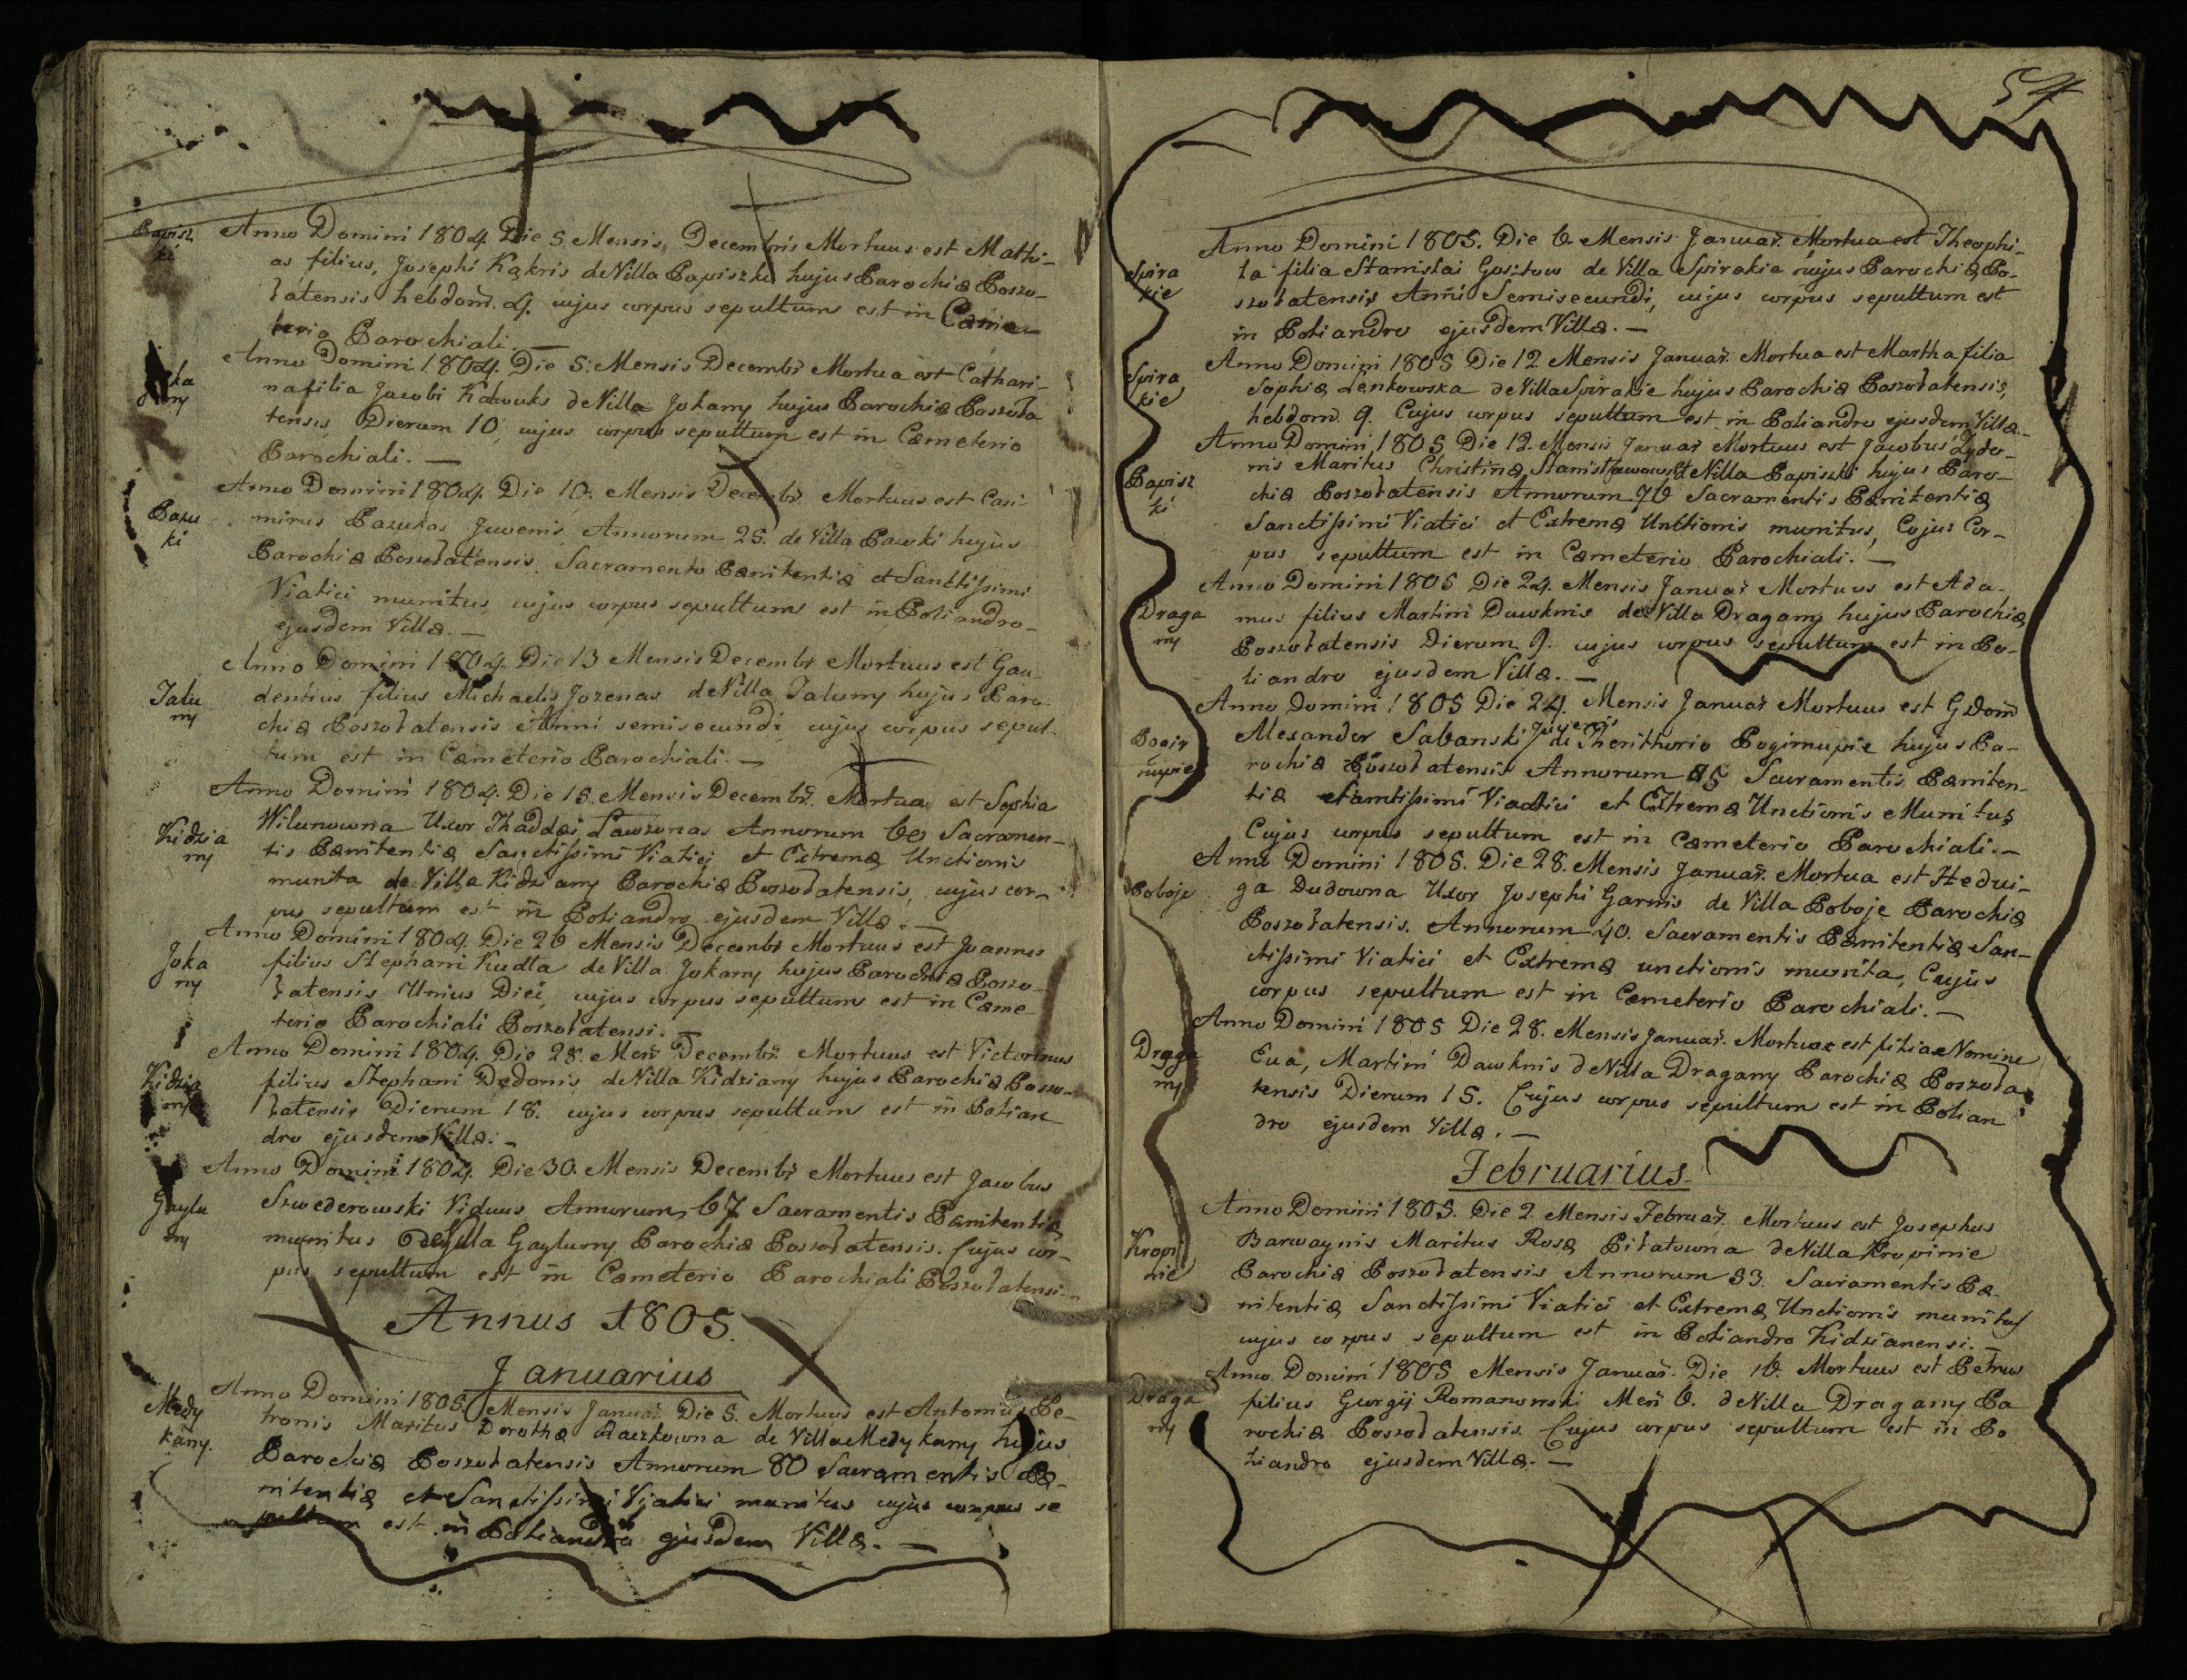 Bapisz
ki
Anno Domini 1804. Die 5 Mensis Decembris Mortuus est Mathi-
as filius, Josephi Kąkris de Villa Bapiszki hujus Parochiæ Poszo-
łatensis hebdom. 4. cujus corpus sepultum est in Cæme-
terio Parochiali. —
Joka
ny
Anno Domini 1804. Die 5. Mensis Decembr Mortua est Cathari-
na filia Jacobi Kawuks de Villa Jokany hujus Parochiæ Poszoła
tensis, Dierum 10, cujus corpus sepultum est in Cæmeterio
Parochiali. —
Anno Domini 1804. Die 10. Mensis Decembr Mortuus est Casi-
Pazu
ki
mirus Pazukas Juvenis Annorum 25. de Villa hujus
Parochiæ Poszołatensis. Sacramento Pænitentiæ et Sanctissimi
Viatici munitus, cujus corpus sepultum est in Poliandro
ejusdem Villæ. —
Anno Domini 1804. Die 13 Mensis Decembr Mortuus est Gau-
Talu
ny
dentius filius Michaelis Jozenas de Villa Taluny hujus Paro-
chiæ Poszołatensis Anni semisecundi, cujus corpus sepul-
tum est in Cæmeterio Parochiali. —
Anno Domini 1804. Die 15. Mensis Decembr. Mortua est Sophia
Kidzia
ny
Wilunowna Uxor Thaddæi Ławzonas Annorum 60 Sacramen-
tis Pænitentiæ Sanctissimi Viatici et Extremæ Unctionis
munita de Villa Kidziany Parochiæ Poszołatensis, cujus cor-
pus sepultum est in Poliandro ejusdem Villæ. —
Anno Domini 1804. Die 26 Mensis Decembr Mortuus est Joannes
Joka
ny
filius Stephani Kudła de Villa Jokany hujus Parochiæ Poszo-
łatensis Unius Diei, cujus corpus sepultum est in Cæme-
terio Parochiali Poszołatensi. —
Anno Domini 1804. Die 28. Men Decembr. Mortuus est Victorinus
Kidzia
ny
filius Stephani Dedonis, de Villa Kidziany hujus Parochiæ Poszo-
łatensis Dierum 18. cujus corpus sepultum est in Polian
dro ejusdem Villæ. —
Anno Domini 1804. Die 30. Mensis Decembr Mortuus est Jacobus
Gaylu
ny
Szwederowski Viduus, Annorum 67 Sacramentis Pænitentiæ
munitus de Villa Gayluny Parochiæ Poszołatensis. Cujus cor-
pus sepultum est in Cæmeterio Parochiali Poszołatensi. —
Annus 1805.
Januarius
Medy
kany.
Anno Domini 1805 Mensis Januar. Die 5. Mortuus est Antonius Pe-
tronis Maritus Dorothæ Raczkowna de Villa Medykany hujus
Parochiæ Poszołatensis Annorum 80 Sacramentis Pæ-
nitentiæ et Sanctissimi Viatici munitus cujus corpus se
pultum est in Poliandro ejusdem Villæ. —
54
Anno Domini 1805. Die 6. Mensis Januar. Mortua est Theophi-
Spira
kie
la filia Stanislai Gosztow de Villa Spirakie hujus Parochiæ Po-
szołatensis Anni Semisecundi, cujus corpus sepultum est
in Poliandro ejusdem Villæ. —
Anno Domini 1805 Die 12 Mensis Januar. Mortua est Martha filia
Spira
kie
Sophiæ Lenkowska de Villa Spirakie hujus Parochiæ Poszołatensis,
hebdom 9. Cujus corpus sepultum est in Poliandro ejusdem Villæ. —
Anno Domini 1805 Die 12. Mensis Januar Mortuus est Jacobus Dydo-
Bapisz
ki
nis Maritus Christinæ de Villa Bapiszki hujus Paro-
chiæ Poszołatensis Annorum 76 Sacramentis Pænitentiæ
Sanctissimi Viatici et Extremæ Unctionis munitus, Cujus Cor-
pus sepultum est in Cæmeterio Parochiali. —
Anno Domini 1805 Die 24. Mensis Januar Mortuus est Ada-
Draga
ny
mus filius Martini Dawknis de Villa Dragany hujus Parochiæ
Poszołatensis Dierum 9. cujus corpus sepultum est in Po-
liandro ejusdem Villæ. —
Anno Domini 1805 Die 24. Mensis Januar Mortuus est G Dom
Pogir
nupie
Alexander Sabanski Juvenis de Therithorio Pogirnupie hujus Pa-
rochiæ Poszołatensis Annorum 85 Sacramentis Pæniten-
tiæ Sanctissimi Viatici et Extremæ Unctionis Munitus
Cujus corpus sepultum est in Cæmeterio Parochiali. —
Anno Domini 1805. Die 28. Mensis Januar. Mortua est Hedvi-
Poboje
ga Dudowna Uxor Josephi Garnis de Villa Poboje Parochiæ
Poszołatensis. Annorum 40. Sacramentis Pænitentiæ San-
ctissimi Viatici et Extremæ unctionis munita, Cujus
corpus sepultum est in Cæmeterio Parochiali. —
Anno Domini 1805 Die 28. Mensis Januar. Mortua est filia Nomine
Draga
ny
Eua, Martini Dawknis de Villa Dragany Parochiæ Poszoła
tensis Dierum 15. Cujus corpus sepultum est in Polian
dro ejusdem Villæ. —
Februarius.
Anno Domini 1805. Die 2. Mensis Februar. Mortuus est Josephus
Kropi
nie
Barwaynis Maritus Rosæ Piłatowna de Villa Kropinie
Parochiæ Poszołatensis Annorum 33. Sacramentis Pæ-
nitentiæ Sanctissimi Viatici et Extremæ Unctionis munitus
cujus corpus sepultum est in Poliandro Kidzianensi. —
Anno Domini 1805 Mensis Januar. Die 16. Mortuus est Petrus
Draga
ny
filius Gurgij Romanowski Men 6. de Villa Dragany Pa
rochiæ Poszołatensis. Cujus corpus sepultum est in Po
liandro ejusdem Villæ. —